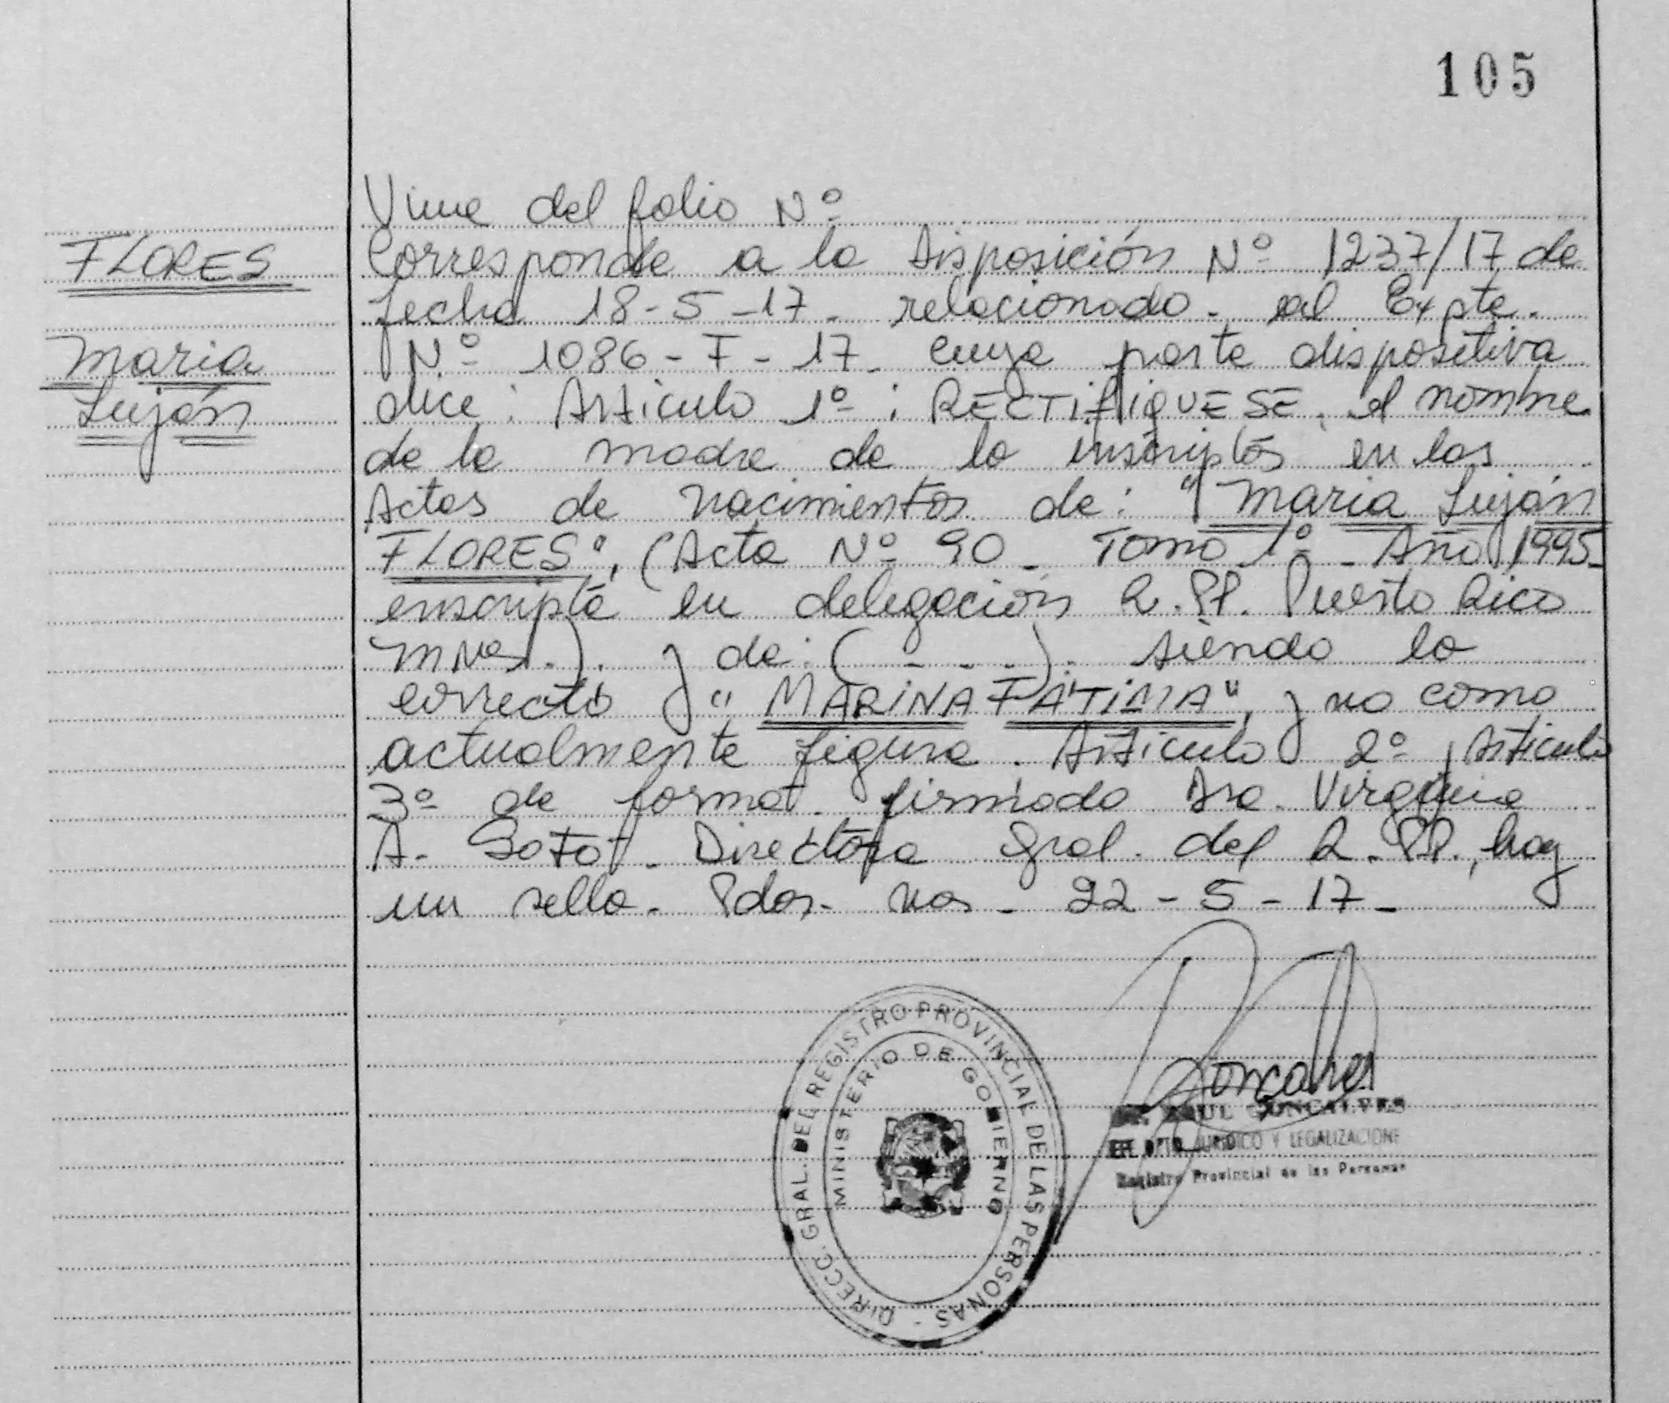 105
Viene del folio Nº
FLORES
Corresponde a la Disposición Nº 1237/17 de
fecha 18-5-17- relacionado. al Expte.
Maria
Nº 1086-F-17- cuya parte dispositiva
Luján
dice: Articulo 1º: RECTIFIQUESE, el nombre
de la madre de la inscripta en las
Actas de nacimientos de: "Maria Luján
FLORES", (Acta Nº 90- Tomo 1º- Año 1995-
inscripta en delegación R.PP. Puerto Rico
Mnes.). y de: (- - -). siendo lo
correcto "MARINA FÁTIMA", y no como
actualmente figura. Articulo 2º, Articulo
3º de forma. firmado Dra. Virginia
A. Soto. Directora Gral. del R.PP., hay
un sello. Pdas. Mnes. 22-5-17-
DIRECC. GRAL. DEL REGISTRO PROVINCIAL DE LAS PERSONAS -
MINISTERIO DE GOBIERNO
RAUL GONCALVES
DPTO. JURIDICO Y LEGALIZACIONE
Registro Provincial de las Personas